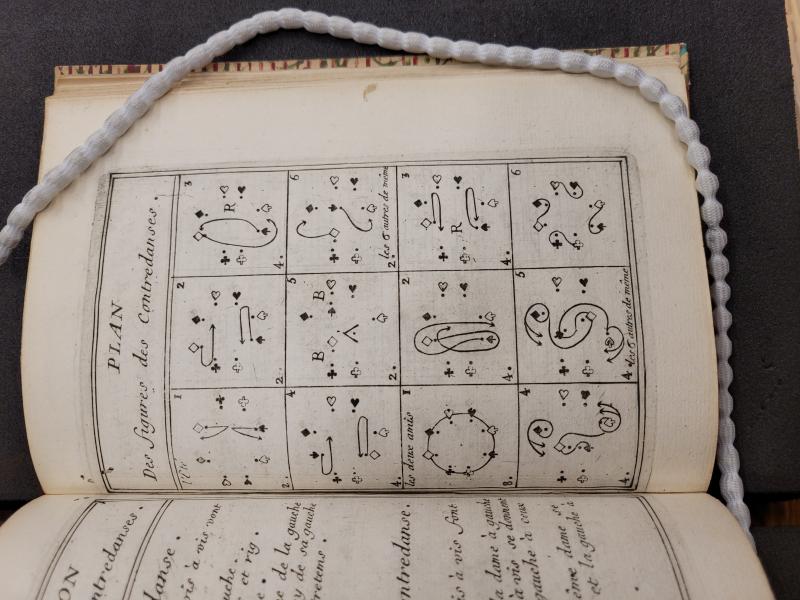 ON
ntredanses.
danse.
vis à vis vont
auche.
et rig.
e.
e de la gauche
y de sa gauche
retems.
ntredanse.
is à vis font
a dame à gauche
à vis se donnent
gauche à ceux
ème dame se
et la gauche à
PLAN
Des figures des Contredanses.
1 2 3
R
2. 2. 4.
4 5 6
B B
4. 2. 2. les 6 autres de même
les deux amis 1 2 3
R
8. 4. 4.
4 5 6
4. 4. les 6 autres de même